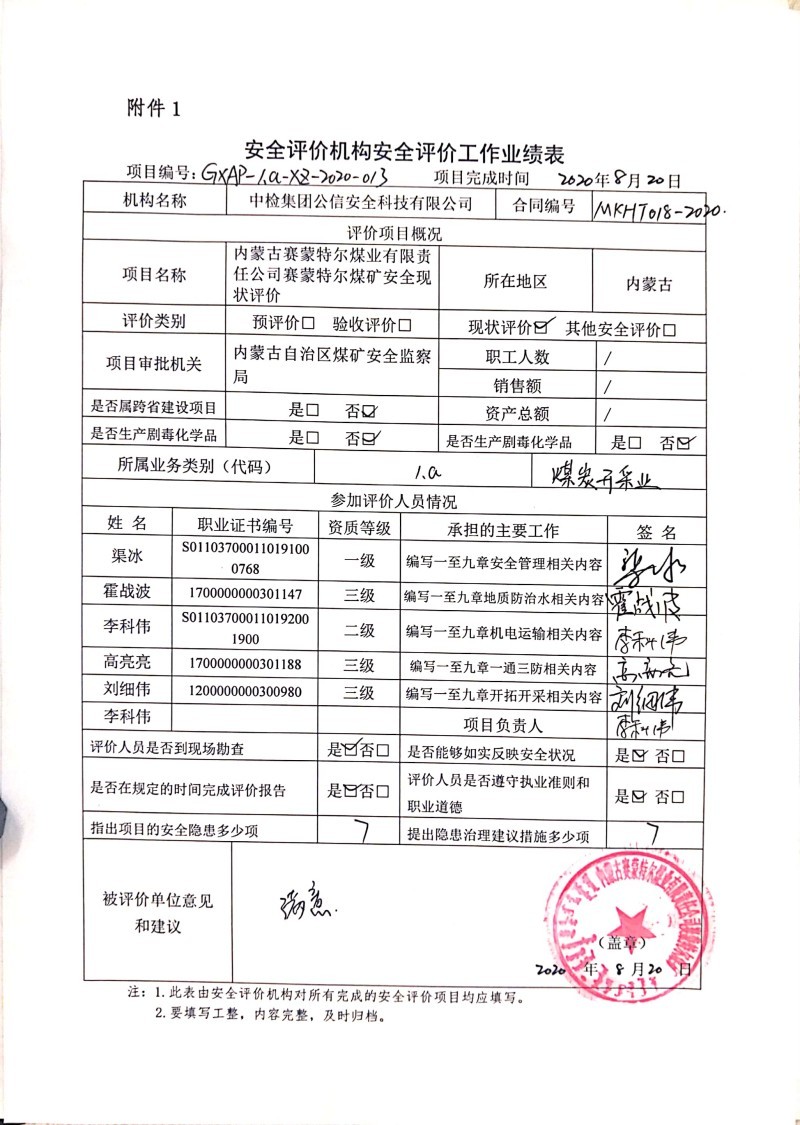 附件1
安全评价机构安全评价工作业绩表
项目编号：GXAP-1.a-XZ-2020-013 项目完成时间 2020年8月20日
机构名称 中检集团公信安全科技有限公司 合同编号 MKHT018-2020.
评价项目概况
项目名称 内蒙古赛蒙特尔煤业有限责任公司赛蒙特尔煤矿安全现状评价 所在地区 内蒙古
评价类别 预评价□ 验收评价□ 现状评价☑ 其他安全评价□
项目审批机关 内蒙古自治区煤矿安全监察局 职工人数 /
销售额 /
是否属跨省建设项目 是□ 否☑ 资产总额 /
是否生产剧毒化学品 是□ 否☑ 是否生产剧毒化学品 是□ 否☑
所属业务类别（代码） 1.a 煤炭开采业
参加评价人员情况
姓 名 职业证书编号 资质等级 承担的主要工作 签 名
渠冰 S011037000110191000768 一级 编写一至九章安全管理相关内容 渠冰
霍战波 1700000000301147 三级 编写一至九章地质防治水相关内容 霍战波
李科伟 S011037000110192001900 二级 编写一至九章机电运输相关内容 李科伟
高亮亮 1700000000301188 三级 编写一至九章一通三防相关内容 高亮亮
刘细伟 1200000000300980 三级 编写一至九章开拓开采相关内容 刘细伟
李科伟 项目负责人 李科伟
评价人员是否到现场勘查 是☑否□ 是否能够如实反映安全状况 是☑ 否□
是否在规定的时间完成评价报告 是☑否□ 评价人员是否遵守执业准则和职业道德 是☑ 否□
指出项目的安全隐患多少项 7 提出隐患治理建议措施多少项 7
被评价单位意见和建议 满意.
（盖章）
2020年8月20日
注：1.此表由安全评价机构对所有完成的安全评价项目均应填写。
2.要填写工整，内容完整，及时归档。